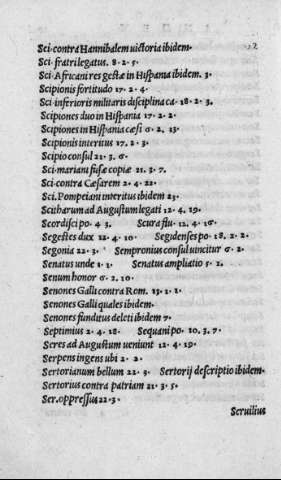 Sci·contra Hannibalem uictoria ibidem·
Sci· fratri legatus. 8·2·5·
Sci·Africani res gestæ in Hispania ibidem. 3·
Scipionis fortitudo 17·2·4·
Sci·inferioris militaris disciplina ca·18·2·3.
Scipiones duo in Hispania 17·2·2·
Scipiones in Hispania cæsi 6·2, 23·
Scipionis interitus 17. 2·3·
Scipio consul 21·3, 6·
Sci·mariani fusæ copiæ 21. 3·7.
Sci·contra Cæsarem 2·4·22·
Sci. Pompeiani interitus ibidem 23·
Scitharum ad Augustum legati 12·4, 19·
Scordisci po· 4 3. Scura flu· 12, 4·16·
Segestes dux 12·4, 10· Segidenses po· 18, 2·2·
Segonia 22·3· Sempronius consul uincitur 6·2·
Senatus unde 1·1· Senatus ampliatio 5·2,
Senum honor 6·2, 10·
Senones Galli contra Rom. 13·1·1·
Senones Galli quales ibidem·
Senones funditus deleti ibidem 7·
Septimius 2·4·18· Sequani po· 10, 3, 7·
Seres ad Augustum ueniunt 12·4, 19·
Serpens ingens ubi 2·2·
Sertorianum bellum 22·3· Sertorij descriptio ibidem·
Sertorius contra patriam 21·3, 5·
Ser. oppressus 22·3·
Seruilius